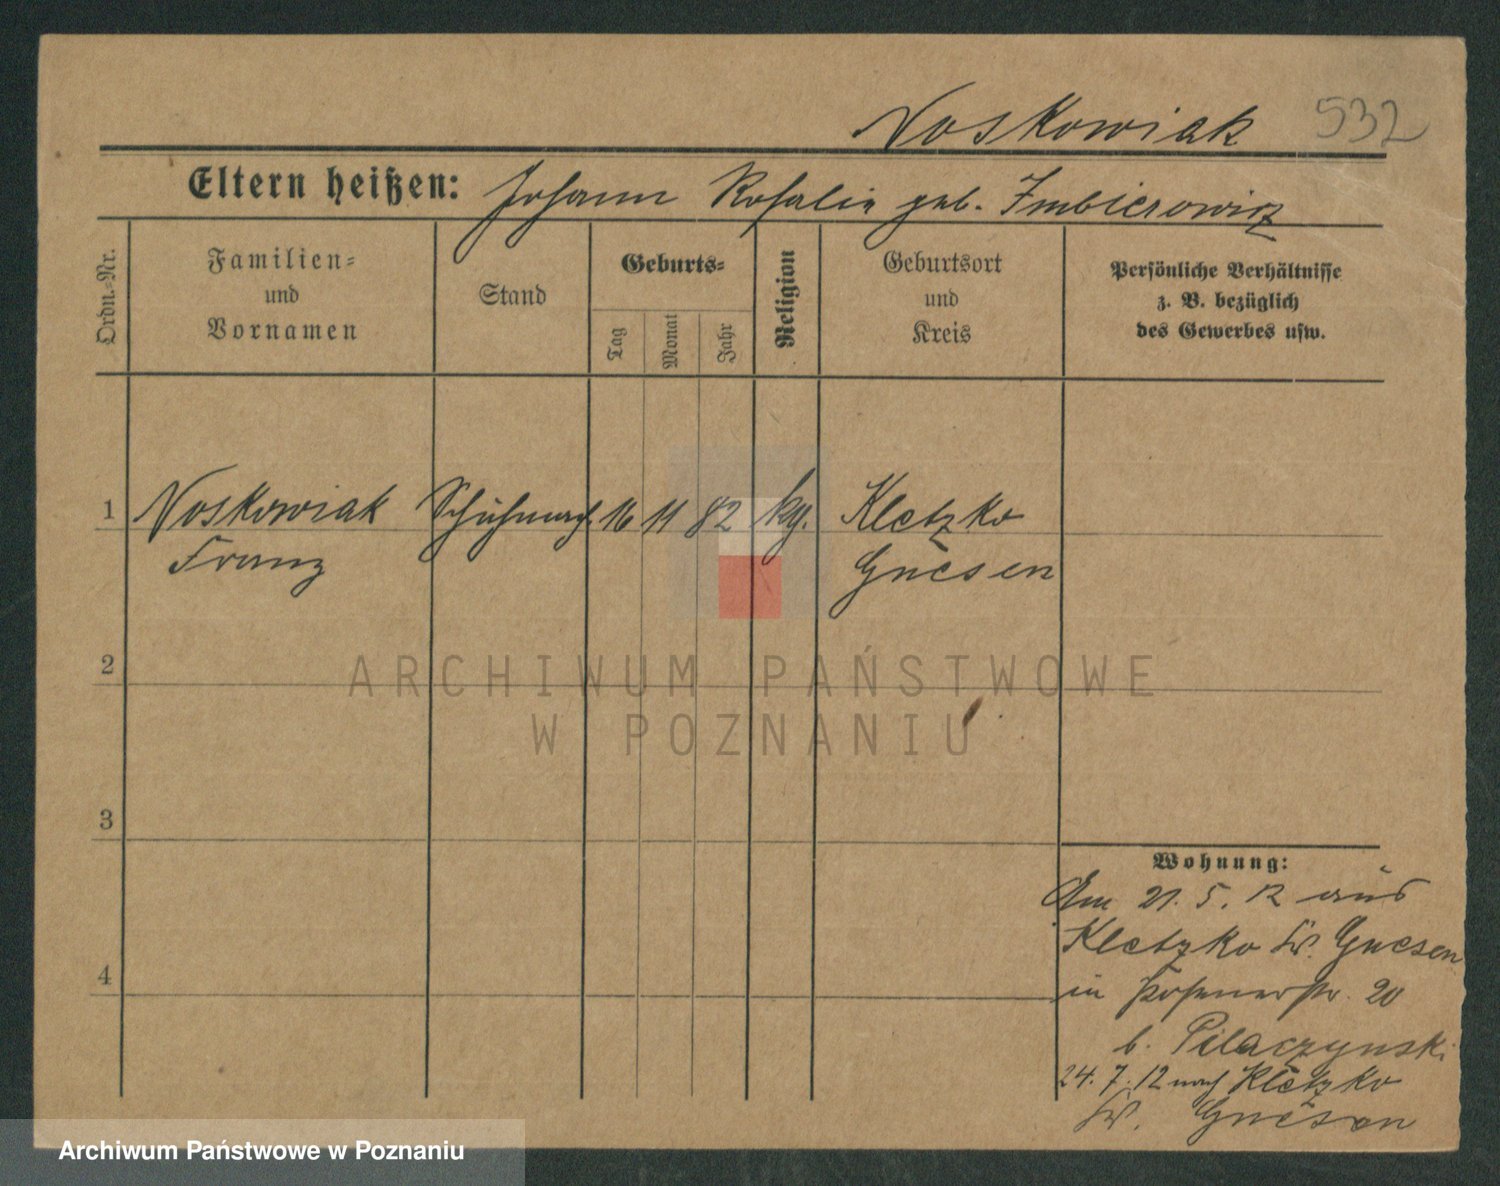 Noskowiak 532
Eltern heißen: Johann Rosalie geb. Imbierowicz
Ordn.-Nr.
Familien-
und
Vornamen
Stand
Geburts-
Tag
Monat
Jahr
Religion
Geburtsort
und
Kreis
Persönliche Verhältnisse
z. B. bezüglich
des Gewerbes usw.
1 Noskowiak Schuhmach. 16 11 82 kg. Kletzko
Franz Gnesen
2
ARCHIWUM PAŃSTWOWE
W POZNANIU
3
Wohnung:
Am 21. 5. 12 aus
Kletzko Kr. Gnesen
in Posenerstr. 20
4
b. Pilaczynski
24. 7. 12 nach Kletzko
Kr. Gnesen
Archiwum Państwowe w Poznaniu